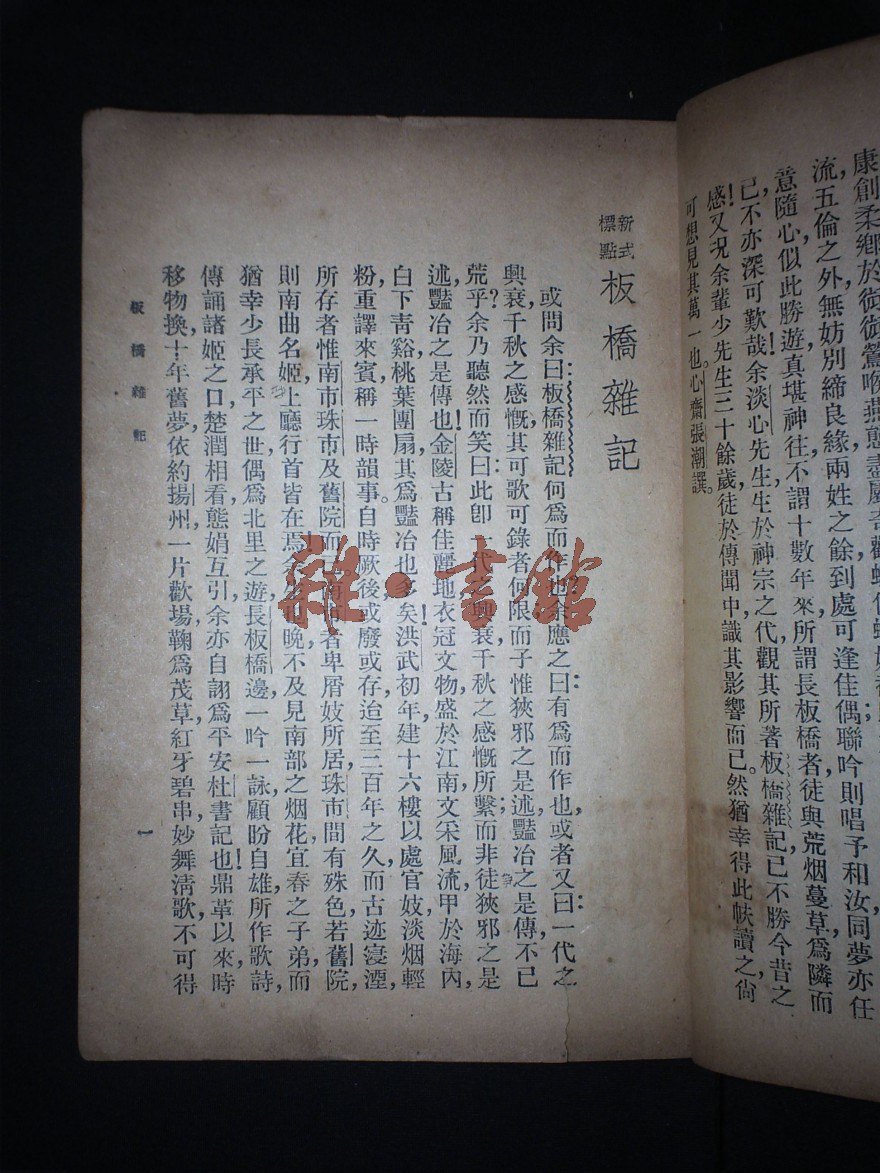 康創柔鄉於衚衕,鶯喉燕態盡屬奇觀
流,五倫之外,無妨別締良緣,兩姓之餘,到處可逢佳偶;聯吟則唱予和汝,同夢亦任
意隨心,似此勝遊,真堪神往,不謂十數年來,所謂長板橋者,徒與荒烟蔓草爲隣而
已,不亦深可歎哉!余淡心先生生於神宗之代,觀其所著板橋雜記,已不勝今昔之
感!又況余輩少先生三十餘歲,徒於傳聞中識其影響而已。然猶幸得此帙讀之,尙
可想見其萬一也。心齋張潮譔。
新式標點 板橋雜記
或問余曰:板橋雜記何爲而作也?余應之曰:有爲而作也,或者又曰:一代之
興衰,千秋之感慨,其可歌可錄者何限,而子惟狹邪之是述,豔冶之是傳,不已
荒乎?余乃聽然而笑曰:此卽一代之興衰,千秋之感慨所繫;而非徒狹邪之是
述,豔冶之是傳也!金陵古稱佳麗地,衣冠文物,盛於江南,文宋風流,甲於海內,
白下靑谿,桃葉團扇,其爲豔冶也多矣!洪武初年,建十六樓以處官妓,淡烟輕
粉,重譯來賓,稱一時韻事。自時厥後,或廢或存,迨至三百年之久,而古迹寖湮,
所存者惟南市珠市及舊院而已,南市者,卑屑妓所居,珠市間有殊色,若舊院,
則南曲名姬,上廳行首皆在焉!余生也晚,不及見南部之烟花,宜春之子弟,而
猶幸少長承平之世,偶爲北里之遊,長板橋邊,一吟一詠,顧盼自雄,所作歌詩,
傳誦諸姬之口,楚潤相看,態娟互引,余亦自詡爲平安杜書記也!鼎革以來,時
移物換,十年舊夢,依約揚州,一片歡場,鞠爲茂草,紅牙碧串,妙舞淸歌,不可得
板橋雜記
一
雜·書館